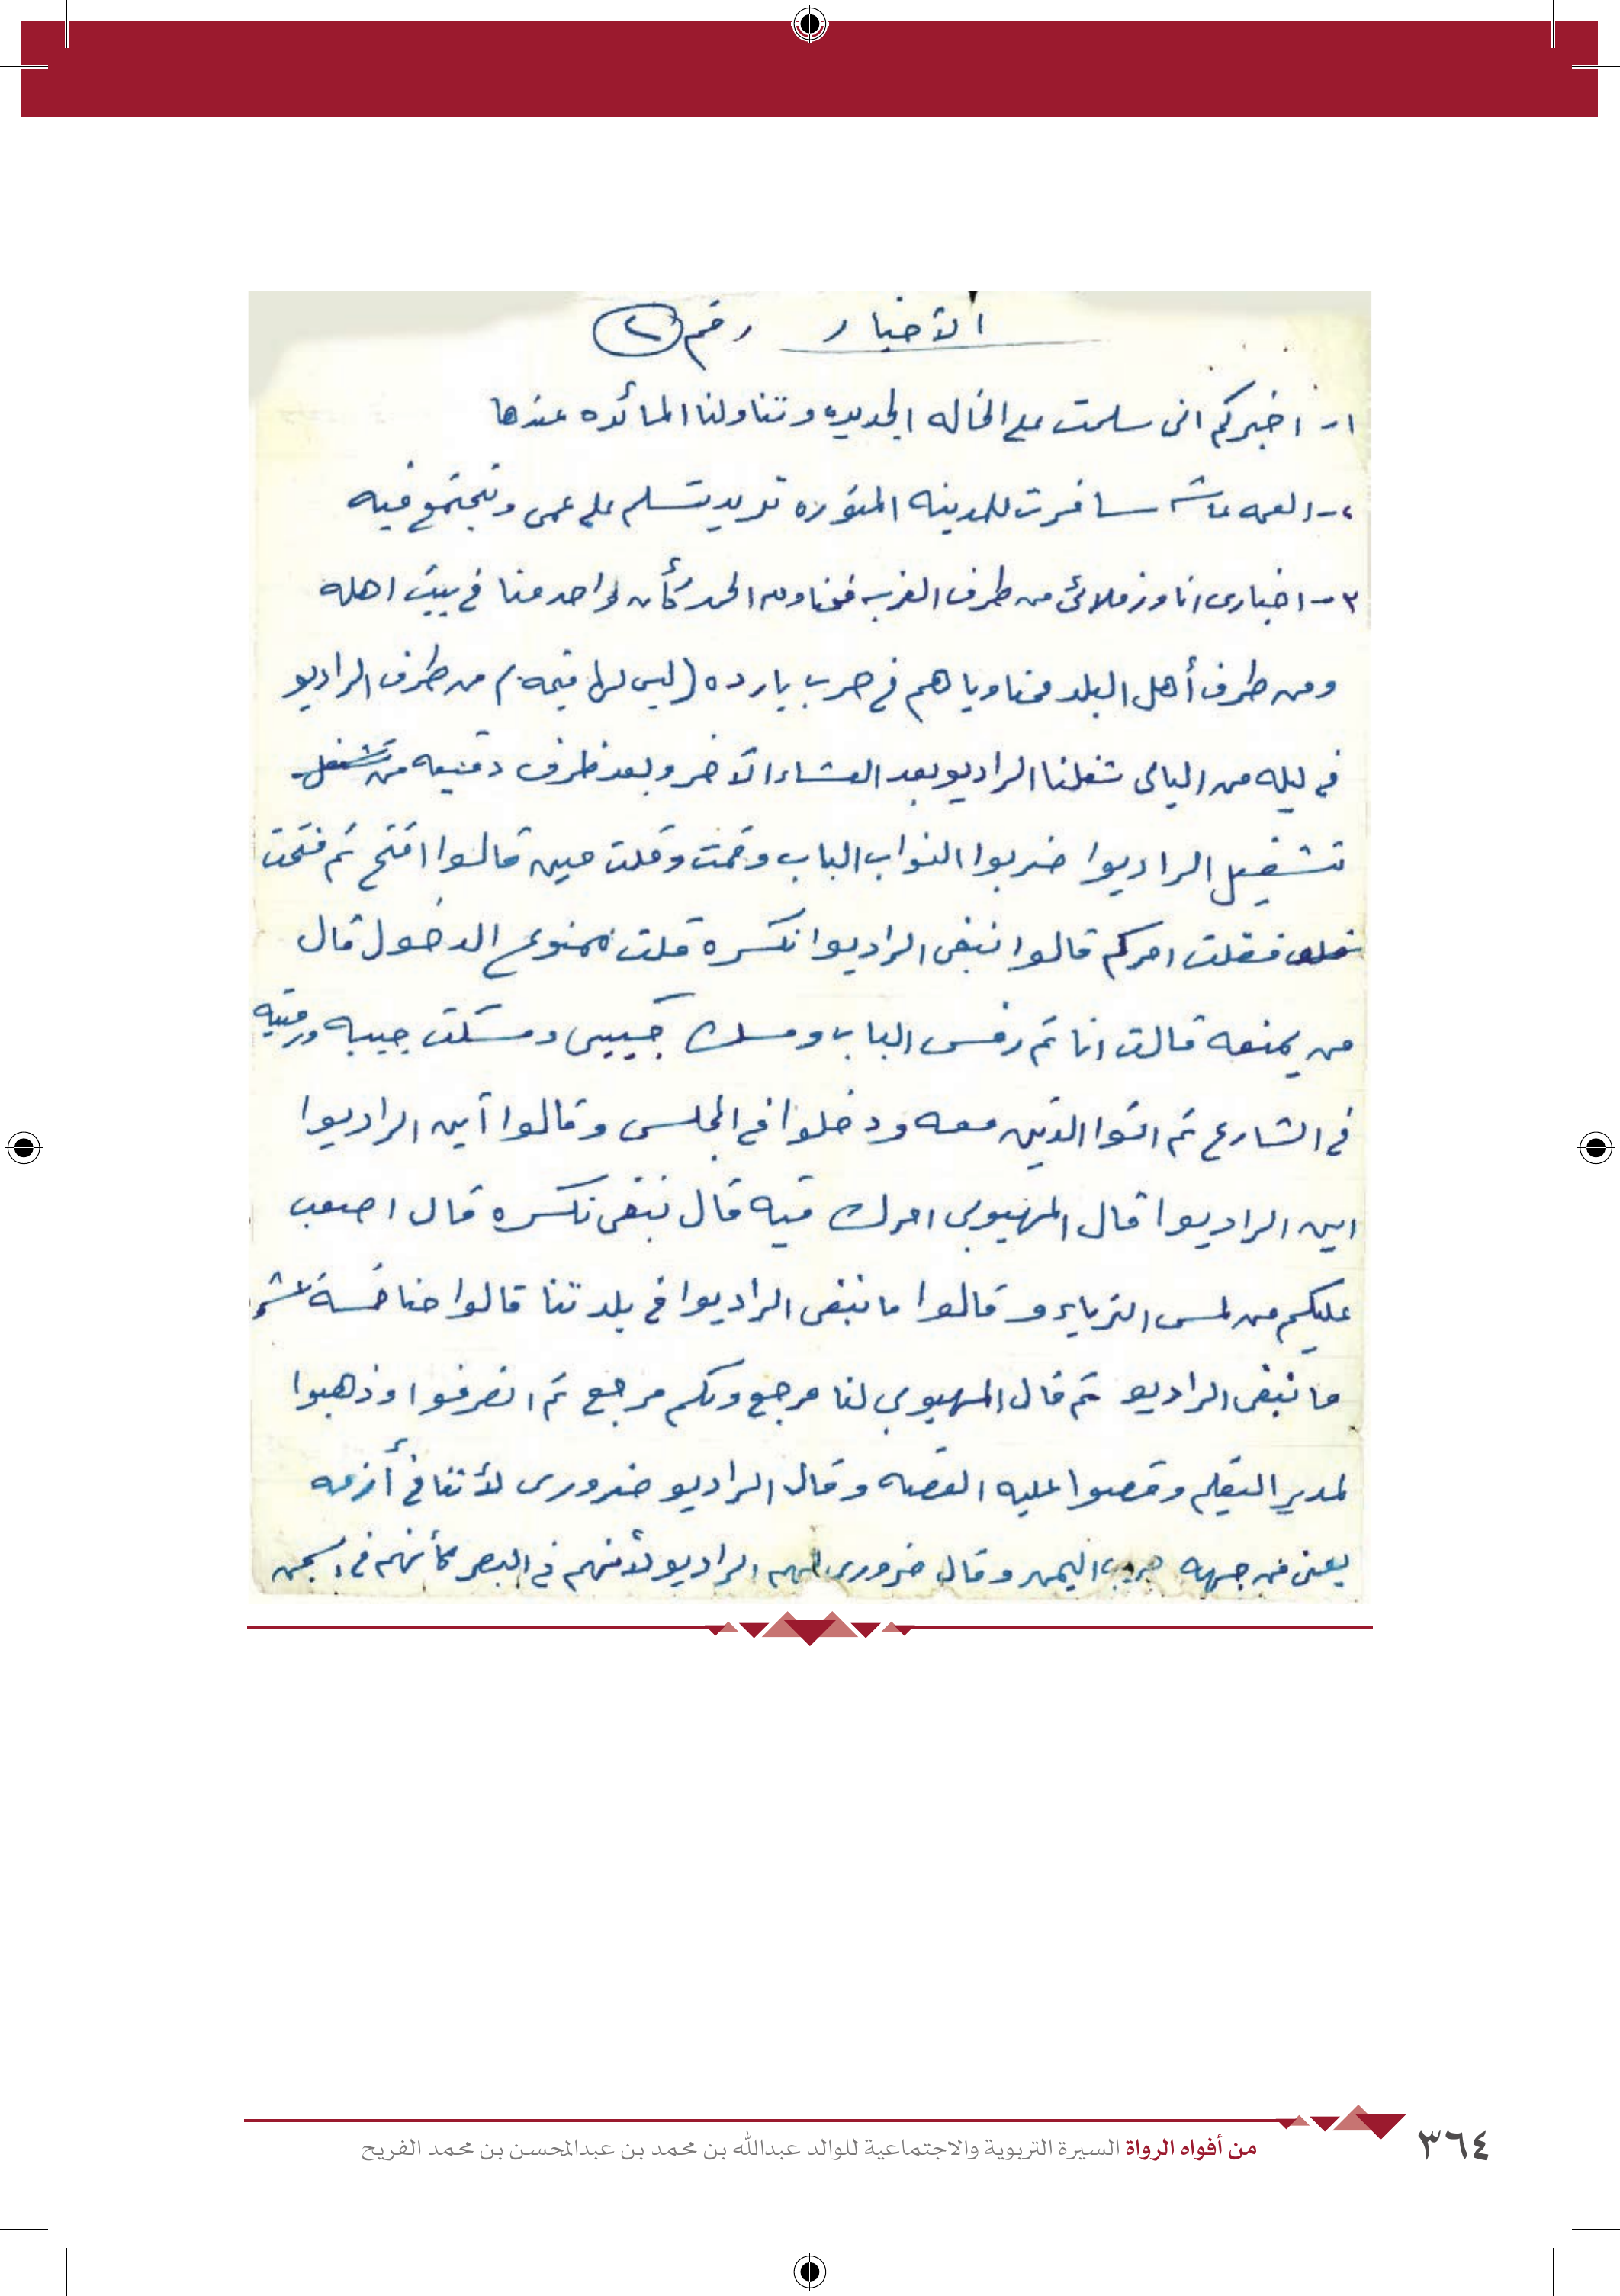 الآخبار رقم ٢
١- اخبركم انى سلمت على الخاله الجديده وتناولنا المائده عندها
٢- العمه عاشه سافرت للمدينه المنوره تريد تسلم على عمى وتجتمع فيه
٣- اخبارى انا وزملائى من طرف الغربه فحنا ولله الحمد كأن لواحد منا في بيت اهله
ومن طرف أهل البلد فحنا وياهم في حرب بارده (ليس لها قيمه) من طرف الراديو
في ليله من اليالى شغلنا الراديو بعد العشاء الآخر وبعد ظرف دقيقه من
تشغيل الراديوا ضربوا النواب الباب وقمت وقلت مين قالوا افتح ثم فتحت
فقلت امركم قالوا نبغى الراديوا نكسره قلت ممنوع الدخول قال
من يمنعه قالت انا ثم رفس الباب ومسك جيبى ومسكت جيبه ورميته
في الشارع ثم اتوا الذين معه ودخلوا في المجلس وقالوا آين الراديوا
اين الراديوا قال المهيوبى امرك فيه قال نبغى نكسره قال اصعب
عليكم من لمس الثرياء وقالوا مانبغى الراديوا في بلدتنا قالوا حنا خمسة عشر
مانبغى الراديو ثم قال المهيوبى لنا مرجع ولكم مرجع ثم انصرفوا وذهبوا
لمدير التعليم وقصوا عليه القصه وقال الراديو ضرورى لأننا في أزمه
يعنى من جهه حرب اليمن وقال ضرورى لهم الراديو لآنهم في البصر كأنهم في السجن
من أفواه الرواة السيرة التربوية والاجتماعية للوالد عبدالله بن محمد بن عبدالمحسن بن محمد الفريح
٣٦٤